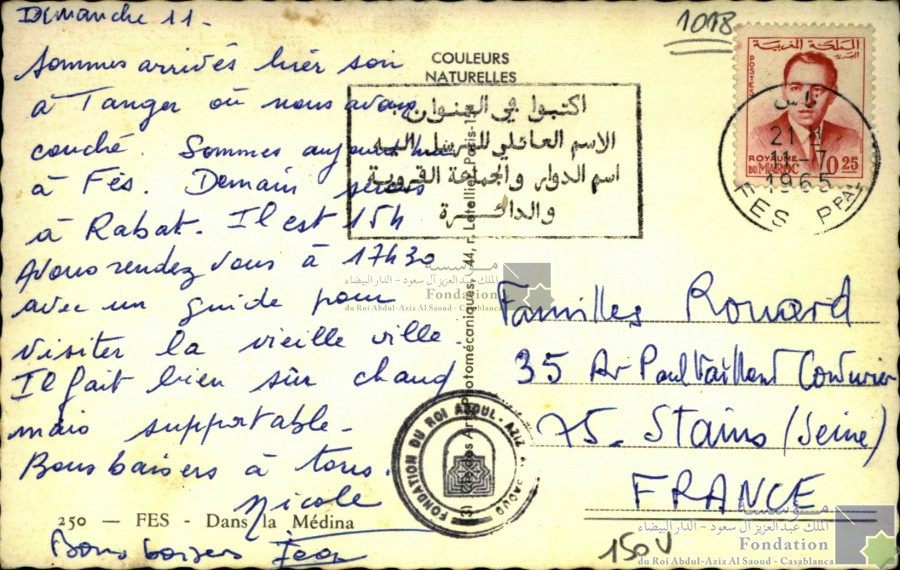 Dimanche 11.
Sommes arrivés hier soir
à Tanger où nous avons
couché. Sommes aujourd'hui
à Fès. Demain serons
à Rabat. Il est 15h
Avons rendez vous à 17h30
avec un guide pour
visiter la vieille ville.
Il fait bien sûr chaud
mais supportable.
Bons baisers à tous.
Nicole
250 — FES - Dans la Médina
Bons baisers Jean
COULEURS
NATURELLES
اكتبوا في العنوان:
الاسم العائلي للمرسل اليه
اسم الدوار والجماعة القروية
والدائرة
Photomécaniques, 44, r. Letellier, Paris-15
1018
المملكة المغربية
POSTES
ROYAUME
DU MAROC
0,25
فاس
21
11-7
1965
FES PPAL
Familles Rouard
35 Av Paul Vaillant Couturier
75. Stains (Seine)
FRANCE
150 V
FONDATION DU ROI ABDUL-AZIZ AL SAOUD
مؤسسة
الملك عبد العزيز آل سعود - الدار البيضاء
Fondation
du Roi Abdul-Aziz Al Saoud - Casablanca
مؤسسة
الملك عبد العزيز آل سعود - الدار البيضاء
Fondation
du Roi Abdul-Aziz Al Saoud - Casablanca